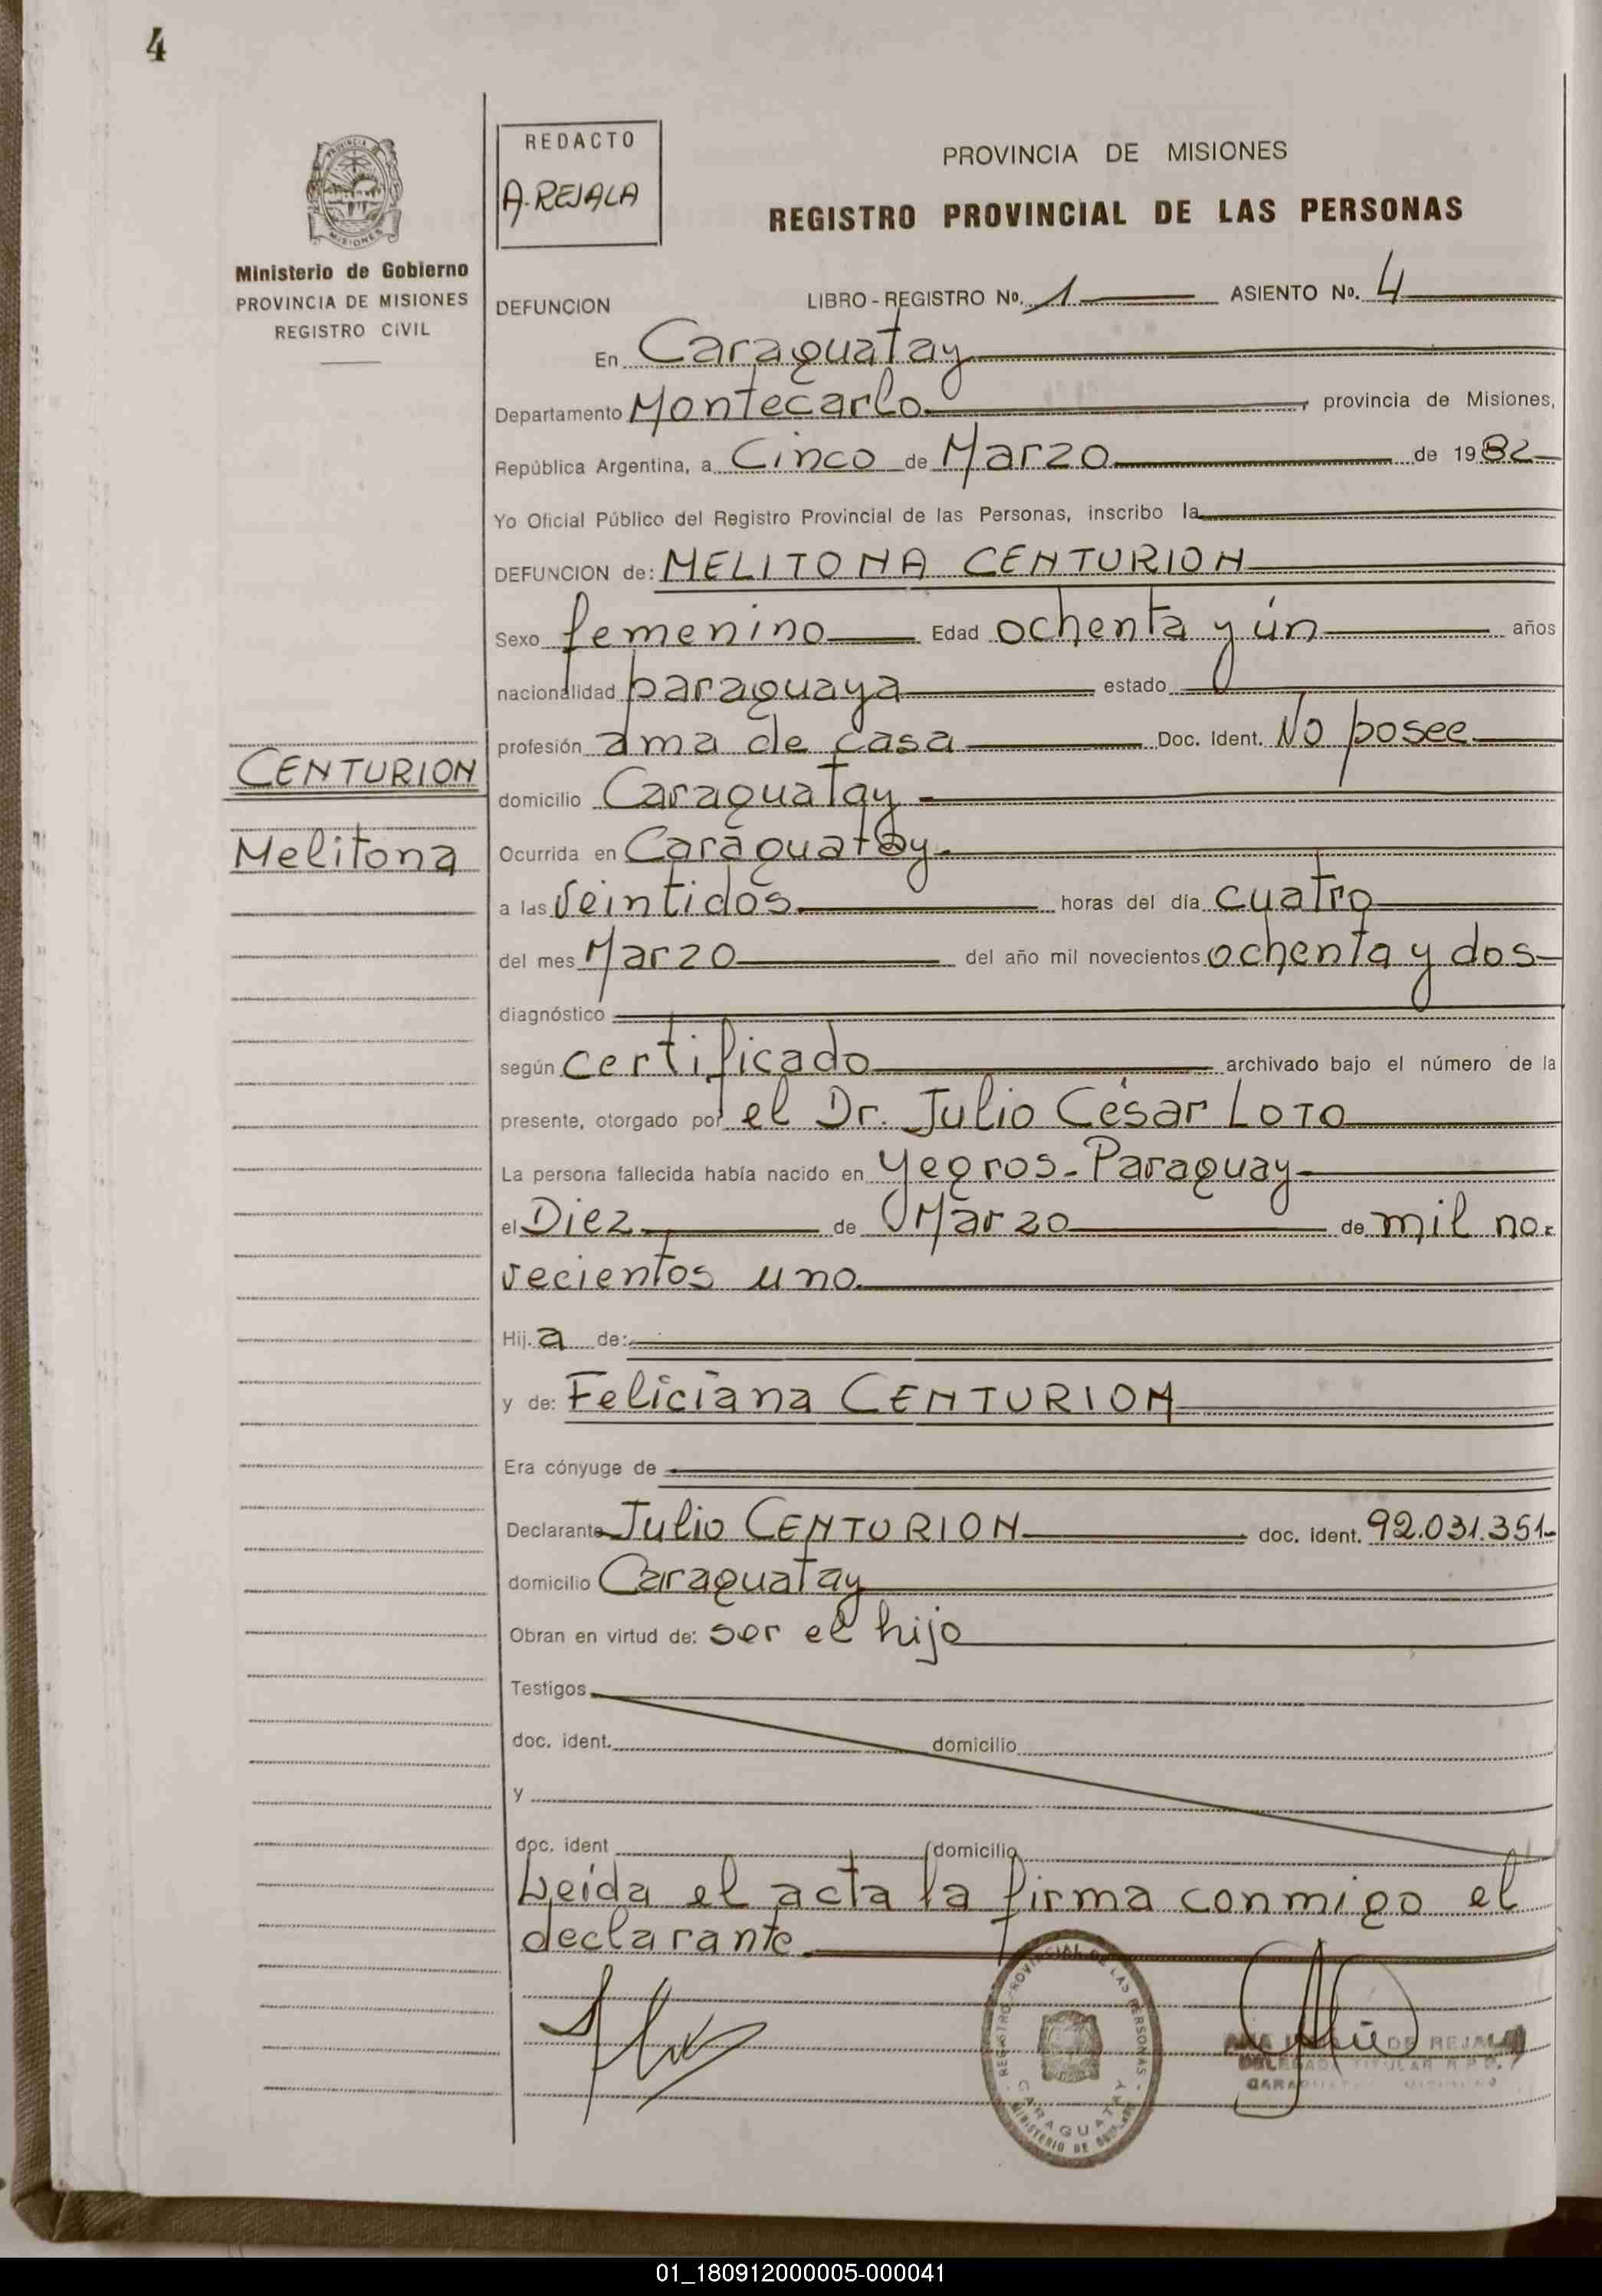 4
PROVINCIA
MISIONES
Ministerio de Gobierno
PROVINCIA DE MISIONES
REGISTRO CIVIL
REDACTO
A. REJALA
PROVINCIA DE MISIONES
REGISTRO PROVINCIAL DE LAS PERSONAS
DEFUNCION LIBRO - REGISTRO Nº. 1 ASIENTO Nº. 4
En Caraguatay
Departamento Montecarlo, provincia de Misiones,
República Argentina, a Cinco de Marzo de 1982
Yo Oficial Público del Registro Provincial de las Personas, inscribo la
DEFUNCION de: MELITONA CENTURION
Sexo femenino Edad ochenta y ún años
nacionalidad paraguaya estado
profesión ama de casa Doc. Ident. No posee
CENTURION
domicilio Caraguatay
Melitona
Ocurrida en Caraguatay
a las veintidos horas del día cuatro
del mes Marzo del año mil novecientos ochenta y dos
diagnóstico
según certificado archivado bajo el número de la
presente, otorgado por el Dr. Julio César LOTO
La persona fallecida había nacido en Yegros - Paraguay
el Diez de Marzo de mil no-
vecientos uno
Hij.a de:
y de: Feliciana CENTURION
Era cónyuge de
Declarante Julio CENTURION doc. ident. 92.031.351
domicilio Caraguatay
Obran en virtud de: ser el hijo
Testigos
doc. ident. domicilio
y
doc. ident domicilio
Leida el acta la firma conmigo el
declarante
REGISTRO PROVINCIAL DE LAS PERSONAS
CARAGUATAY
MINISTERIO DE
ANA DE REJALA
DELEGADA TITULAR R.P.P.
01_180912000005-000041